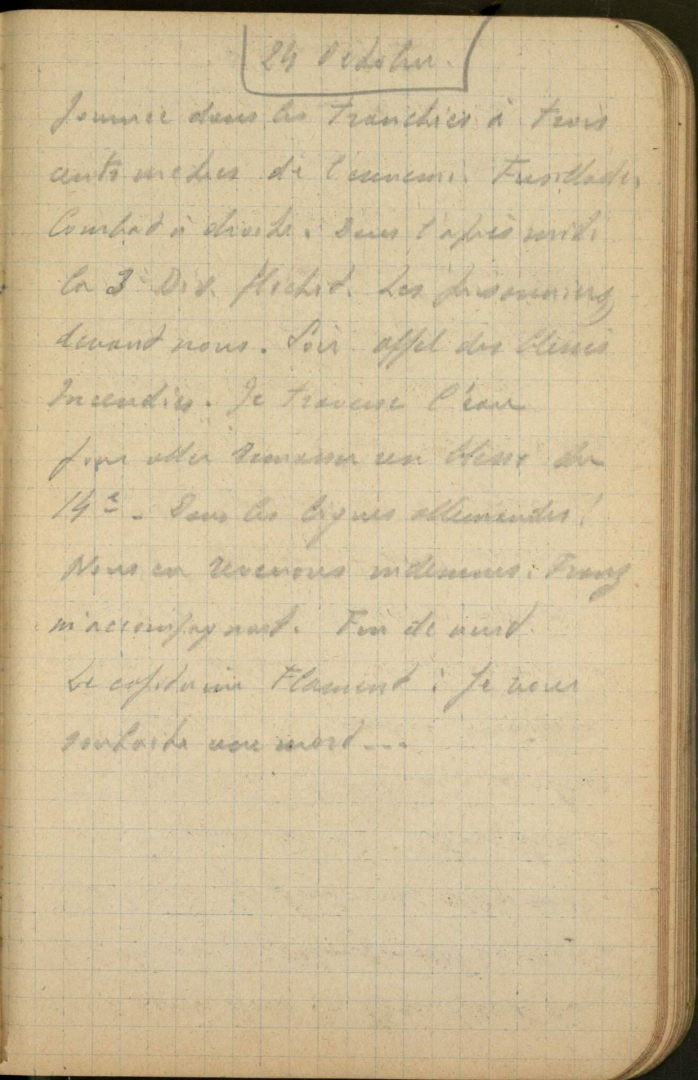 24 Octobre.
Journée dans les tranchées à trois
cents mètres de l'ennemi. Fusillades
Combat à droite. Dans l'après midi
la 3e Div. fléchit. Les prisonniers
devant nous. Soir appel des blessés
Incendies. Je traverse l'eau
pour aller ramasser un blessé du
14e - Dans les lignes allemandes!
Nous en revenons indemnes. Franz
m'accompagnait. Feu de nuit.
Le capitaine Flament : Je vous
souhaite une mort...